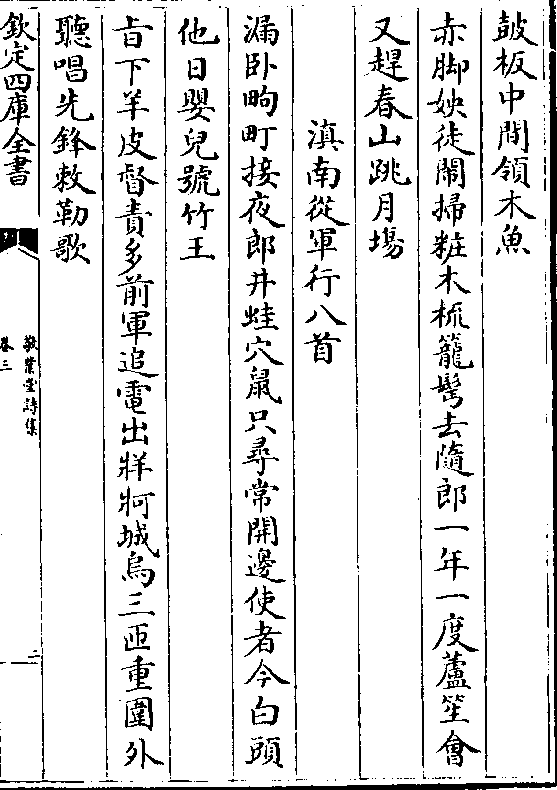 皷板中間領木魚
赤脚姎徒鬧掃粧木梳籠髩去隨郎一年一度蘆笙會
又趕春山跳月塲
滇南從軍行八首
漏卧眴町接夜郎井蛙穴鼠只尋常開邊使者今白頭
他日嬰兒號竹王
㫖下羊皮督責多前軍追電出牂牁城烏三匝重圍外
聽唱先鋒敕勒歌
欽定四庫全書
敬業堂詩集
卷三
二